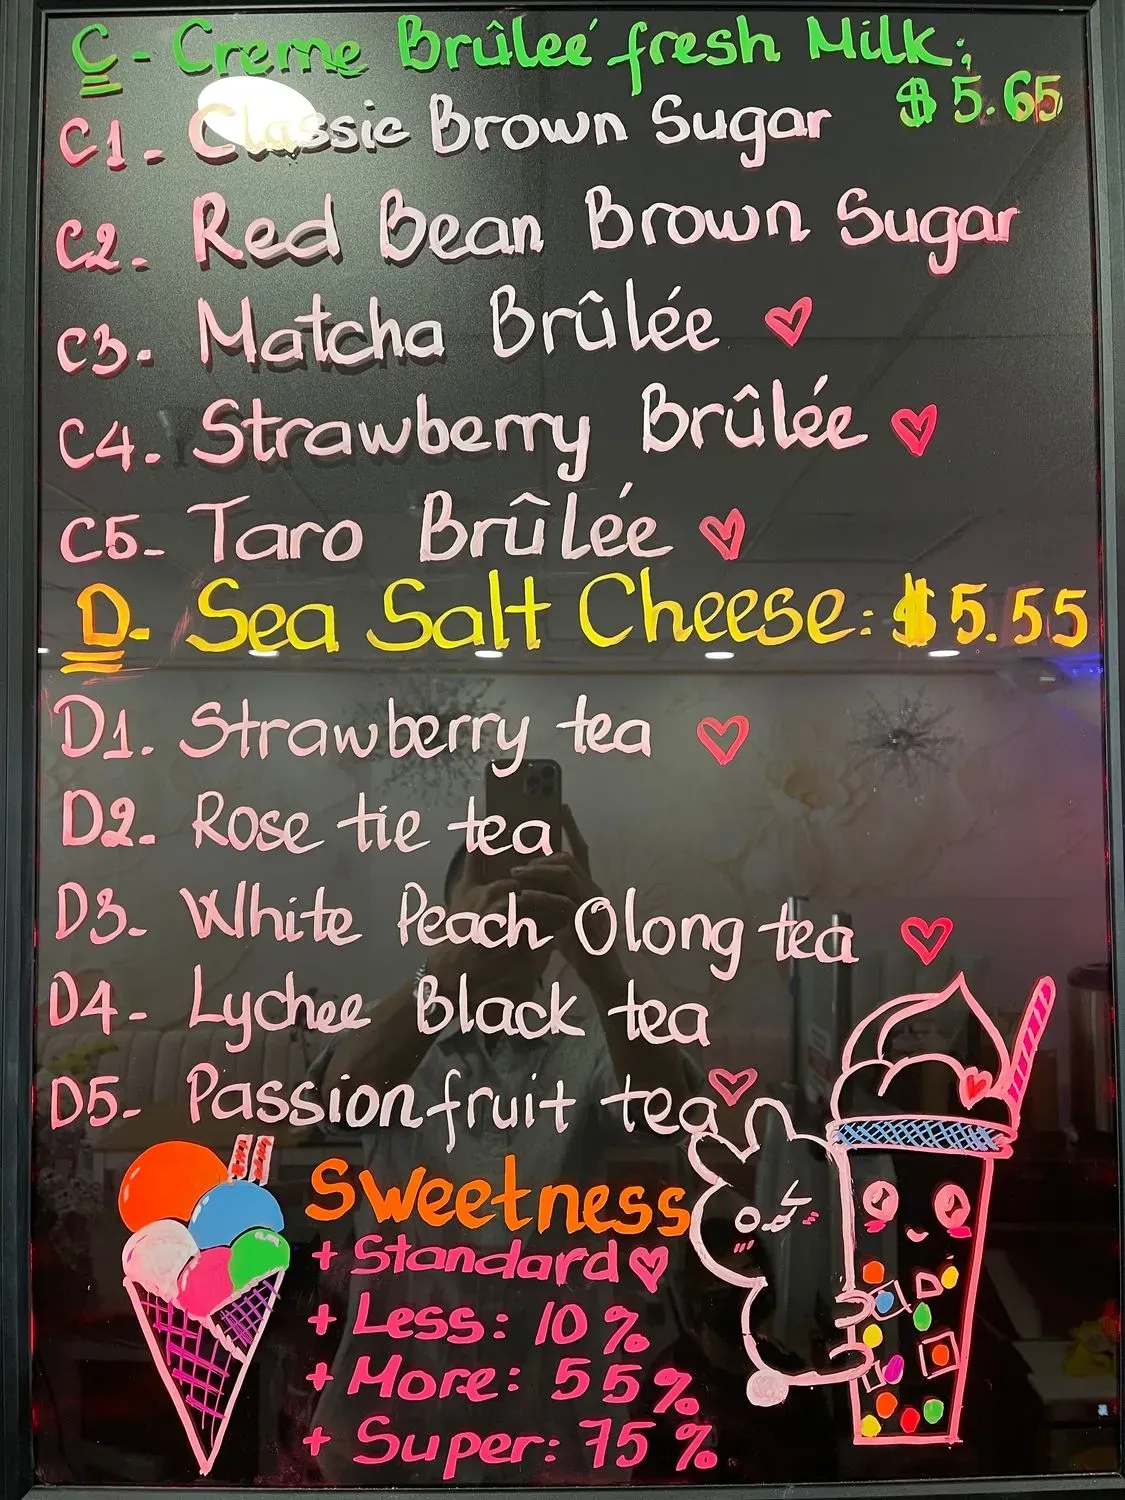 C - Creme Brûleé fresh Milk:
$5.65
C1 - Classic Brown Sugar
C2. Red Bean Brown Sugar
C3- Matcha Brûlée
C4. Strawberry Brûlée
C5- Taro Brûlée
D- Sea Salt Cheese: $5.55
D1. Strawberry tea
D2- Rose tie tea
D3- White Peach Olong tea
D4- Lychee Black tea
D5- Passionfruit tea
Sweetness
+ Standard
+ Less: 10%
+ More: 55%
+ Super: 75%